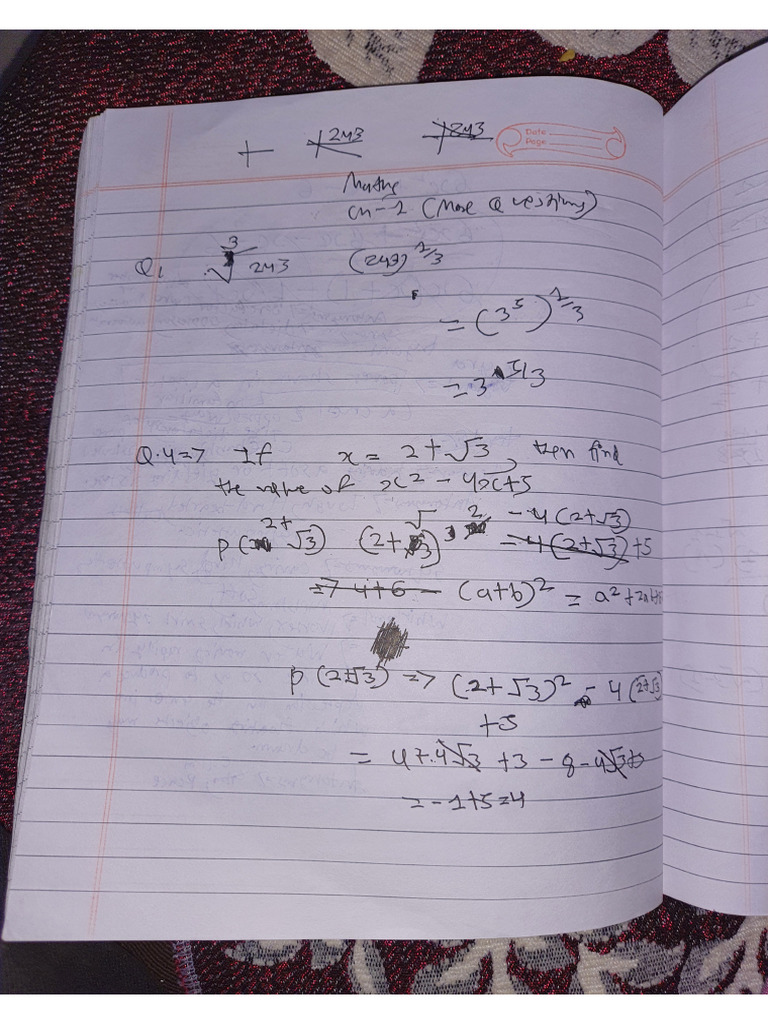 243 243
Date
Page
Maths
Ch-1 (More Questions)
Q1 ∛243 (243)^1/3
= (3^5)^1/3
= 3^5/3
Q.4=> If x = 2+√3, then find
the value of x² - 4x+5
- 4(2+√3)
p(2+√3) (2+√3)² = 4(2+√3) +5
=> 4+6 - (a+b)² = a²+2ab+
p(2+√3) => (2+√3)² - 4(2+√3)
+5
= 4+4√3 +3 - 8 - 4√3+5
= -1+5=4